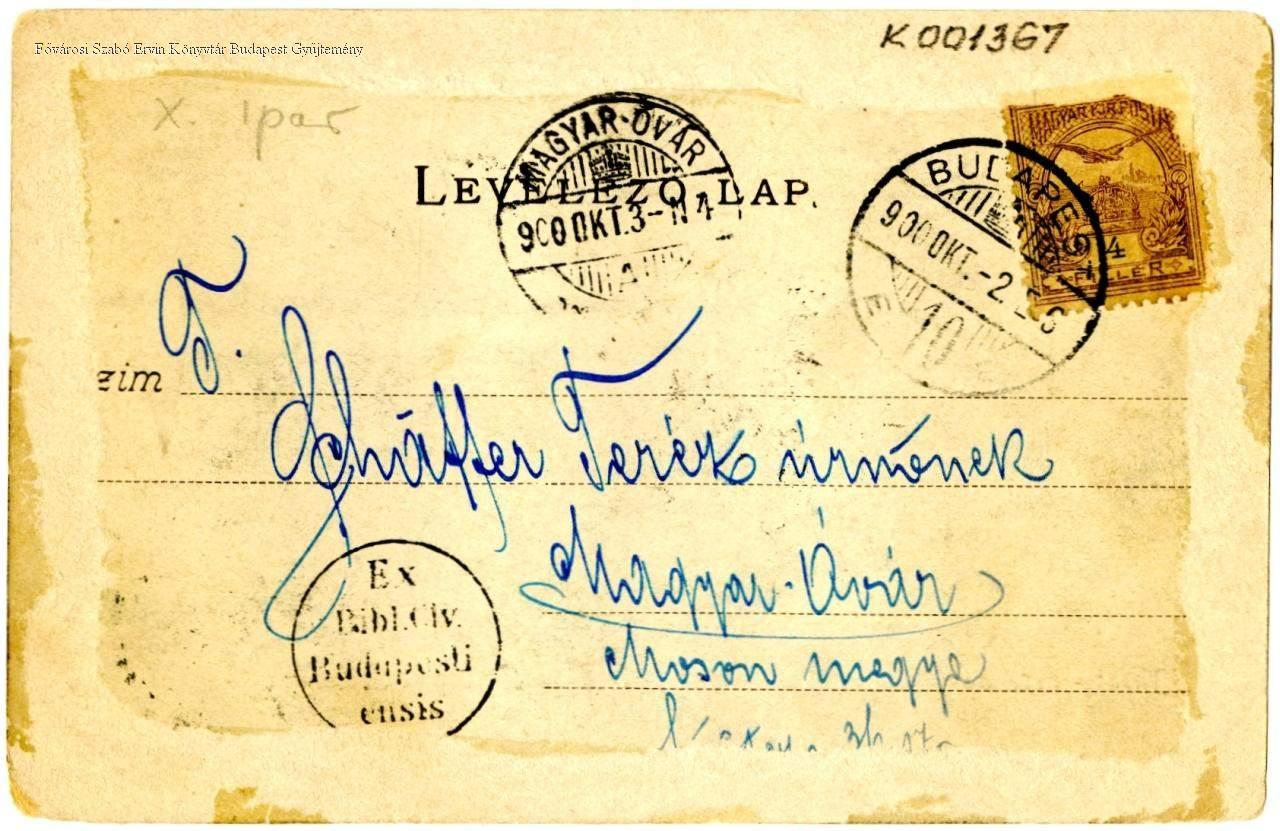 Fővárosi Szabó Ervin Könyvtár Budapest Gyűjtemény
K001367
X. Ipar
MAGYAR-ÓVÁR
900 OKT. 3-N 4
A
LEVELEZŐ-LAP.
BUDAPE
900 OKT.-2.
E
10
MAGYAR KIR. POSTA
4
FILLÉR
zim
T.
Schäffer Teréz úrnőnek
Magyar-Óvár
Moson megye
Ex
Bibl. Civ.
Budapesti
ensis